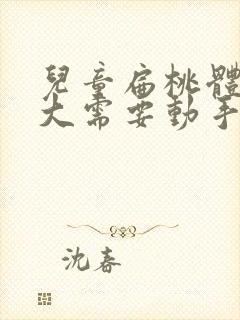 兒童扁桃體
大需要動手
沈春